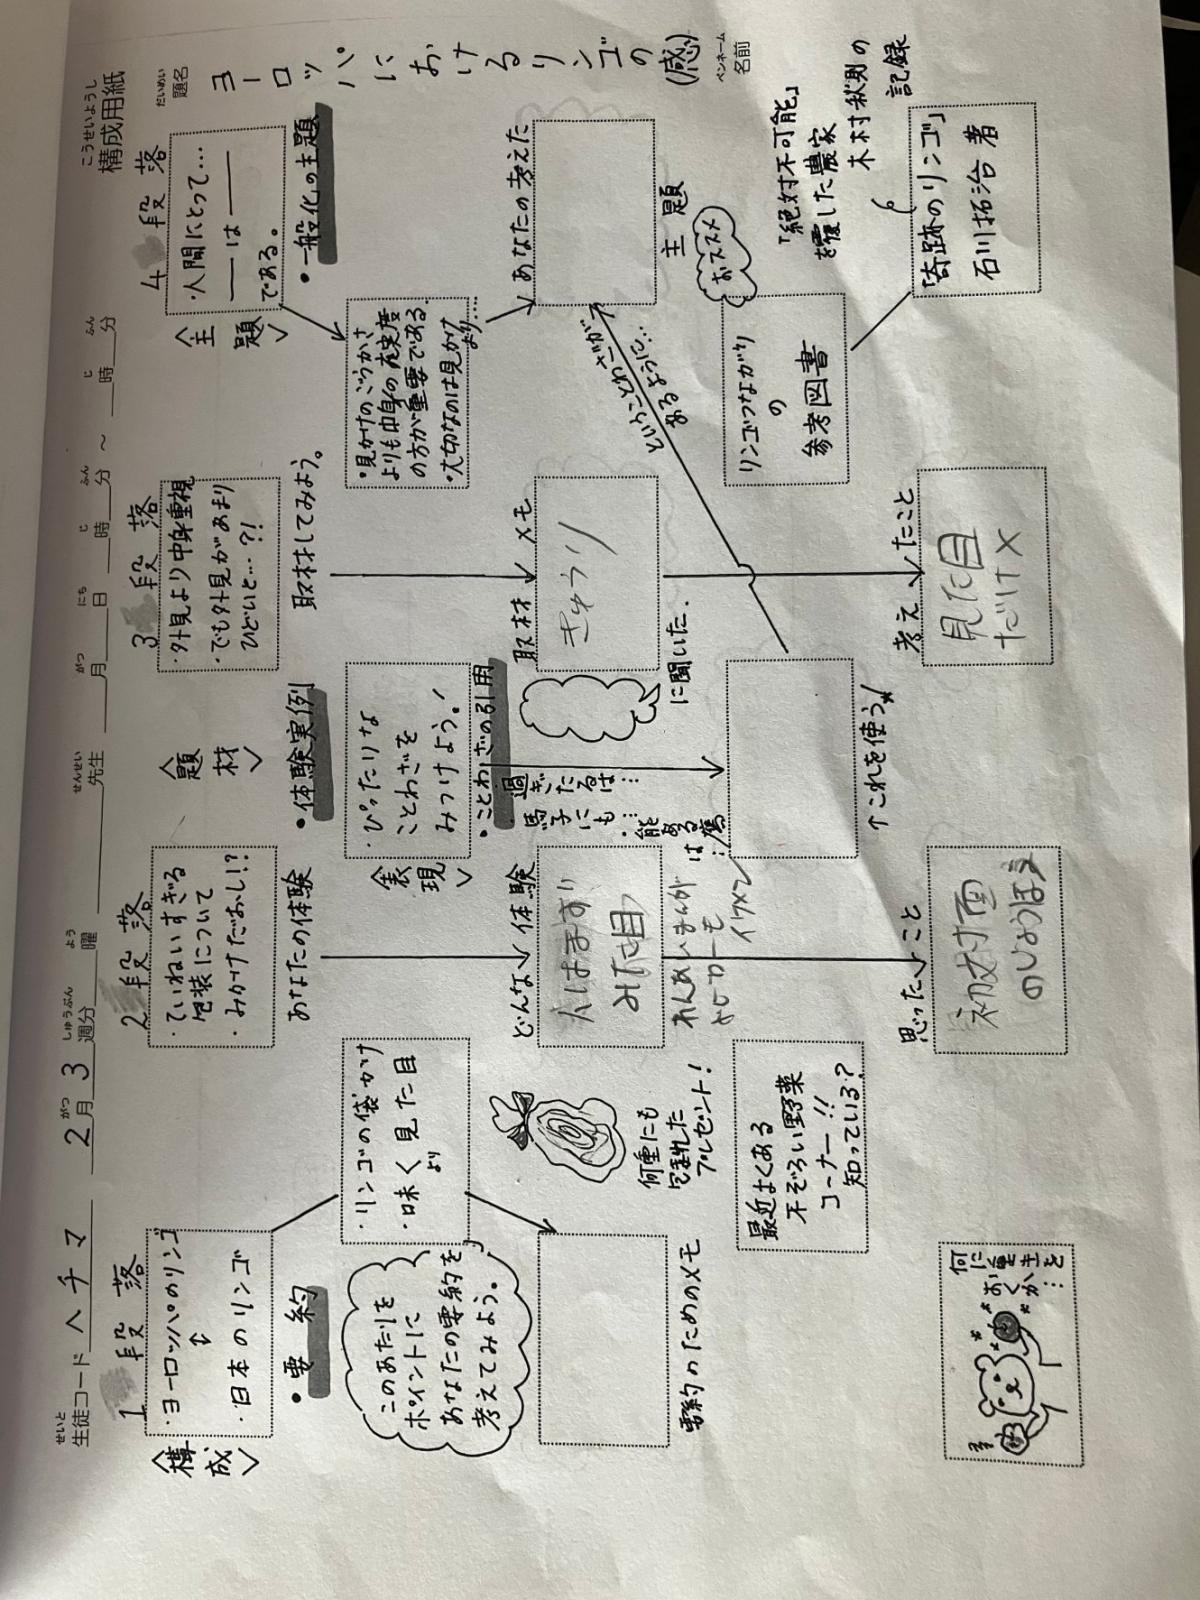 こうせいようし
構成用紙
せいと
生徒コード ヘチマ
がつ しゅうぶん よう
2月3週分 曜
せんせい
先生
がつ にち じ ふん じ ふん
月 日 時 分 ～ 時 分
だいめい
題名
ヨーロッパにおけるリンゴの(感)
ペンネーム
名前
〈構成〉
1段落
・ヨーロッパのリンゴ
↕
・日本のリンゴ
・要約
・リンゴの袋かけ
・味より見た目
このあたりを
ポイントに
あなたの要約を
考えてみよう。
要約のためのメモ
何重にも
包まれた
プレゼント!
最近よくある
不ぞろい野菜
コーナー!!
知っている?
何に重きを
おくか…
2段落
・ていねいすぎる
包装について
・みかけだおし!?
あなたの体験
どんな体験
みた目
イケメン
思ったこと
初対面
〈題材〉
・体験実例
〈表現〉
・ぴったりな
ことわざを
みつけよう!
・ことわざの引用
・過ぎたるは…
・馬子にも…
・能ある鷹は…
↑これを使う
3段落
・外見より中身重視
・でも外見があまり
ひどいと…?!
取材してみよう。
取材メモ
きゅうり
に聞いた.
考えたこと
見た目
だけ×
〈主題〉
4段落
・人間にとって…
――は――
である。
・一般化の主題
・見かけのごうかさ
よりも中身の充実度
の方が重要である.
・大切なのは見かけより…
あなたの考えた
主題
ということわざが
あるように…
おススメ
リンゴつながり
の
参考図書
「奇跡のリンゴ」
石川拓治 著
「絶対不可能」
を覆した農家
木村秋則の
記録